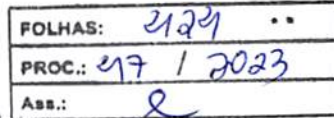 FOLHAS: 424
PROC.: 47 / 2023
Ass.: